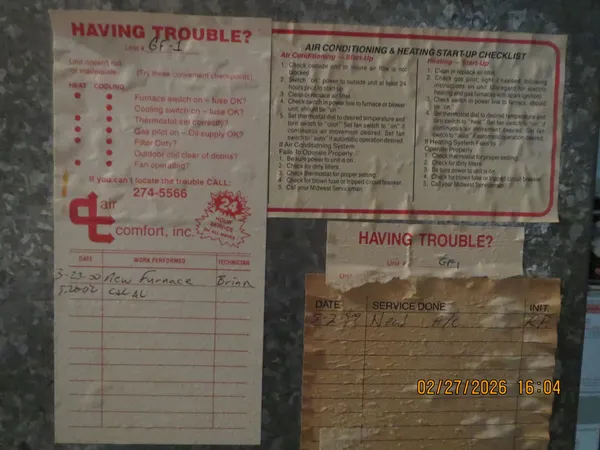 HAVING TROUBLE?
Unit # GF-1
Unit doesn't run
or inadequate (Try these convenient checkpoints)
HEAT COOLING
Furnace switch on - fuse OK?
Cooling switch on - fuse OK?
Thermostat set correctly?
Gas pilot on - Oil supply OK?
Filter Dirty?
Outdoor coil clear of debris?
Fan operating?
If you can't locate the trouble CALL:
274-5566
air
comfort, inc.
24
HOUR
SERVICE
DATE WORK PERFORMED TECHNICIAN
3-23-00 New Furnace Brian
AIR CONDITIONING & HEATING START-UP CHECKLIST
Air Conditioning — Start-Up
1. Check outside unit to insure air flow is not
blocked
2. Switch "on" power to outside unit at least 24
hours prior to start up
3. Clean or replace air filter
4. Check switch in power line to furnace or blower
unit, should be "on"
5. Set thermostat dial to desired temperature and
turn switch to "cool". Set fan switch to "on" if
continuous air movement desired. Set fan
switch to "auto" if automatic operation desired.
If Air Conditioning System
Fails To Operate Properly
1. Be sure power to unit is on.
2. Check for dirty filters
3. Check thermostat for proper setting.
4. Check for blown fuse or tripped circuit breaker
5. Call your Midwest Serviceman
Heating — Start-Up
1. Clean or replace air filter.
2. Check gas pilot, light if needed, following
instructions on unit
3. Check switch in power line to furnace, should
be "on"
4. Set thermostat dial to desired temperature and
turn switch to "heat". Set fan switch to "on" if
continuous air movement desired. Set fan
switch to "auto" if automatic operation desired.
If Heating System Fails To
Operate Properly
1. Check thermostat for proper setting
2. Check for dirty filters
3. Be sure power to unit is on.
4. Check for blown fuse or tripped circuit breaker
5. Call your Midwest Serviceman
HAVING TROUBLE?
Unit # GF1
DATE SERVICE DONE INIT.
8-2-99 New A/C
02/27/2026 16:04